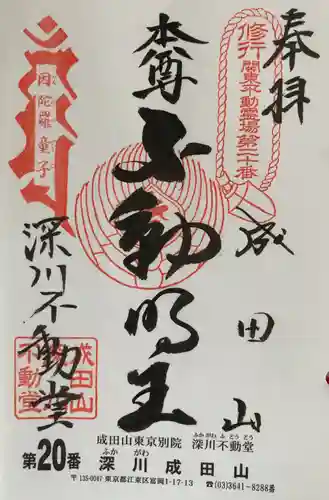 奉拝
修行
関東不動霊場第二十番
成田山
本尊
不動明王
因陀羅童子
深川不動堂
成田山
不動堂
第20番
成田山東京別院 深川不動堂
ふかがわ ふどうどう
深川成田山
ふか がわ
〒135-0047 東京都江東区富岡1-17-13 ☎(03)3641-8288番